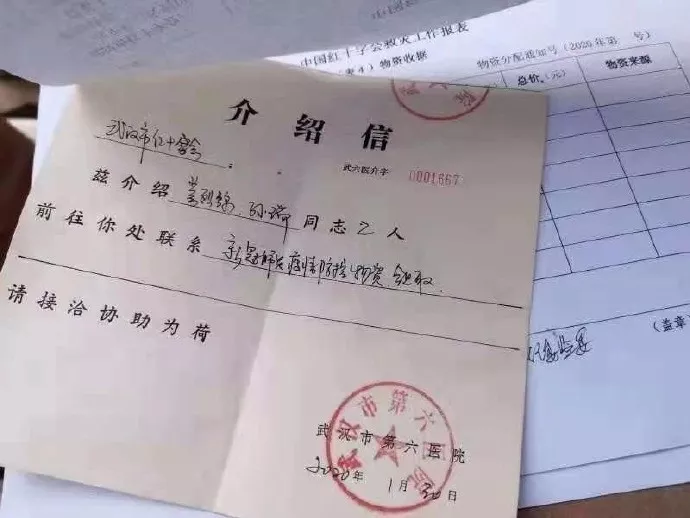 中国红十字会救灾工作报表
物资收据
物资分配通知号(2020年第 号)
总价(元)
物资来源
介绍信
武汉市红十字会
武六医介字 0001667
兹介绍 孙 同志乙人
前往你处联系 新冠肺炎疫情防控物资领取
请接洽协助为荷
(盖章)
武汉市第六医院
武汉市第六医院
2020年1月30日